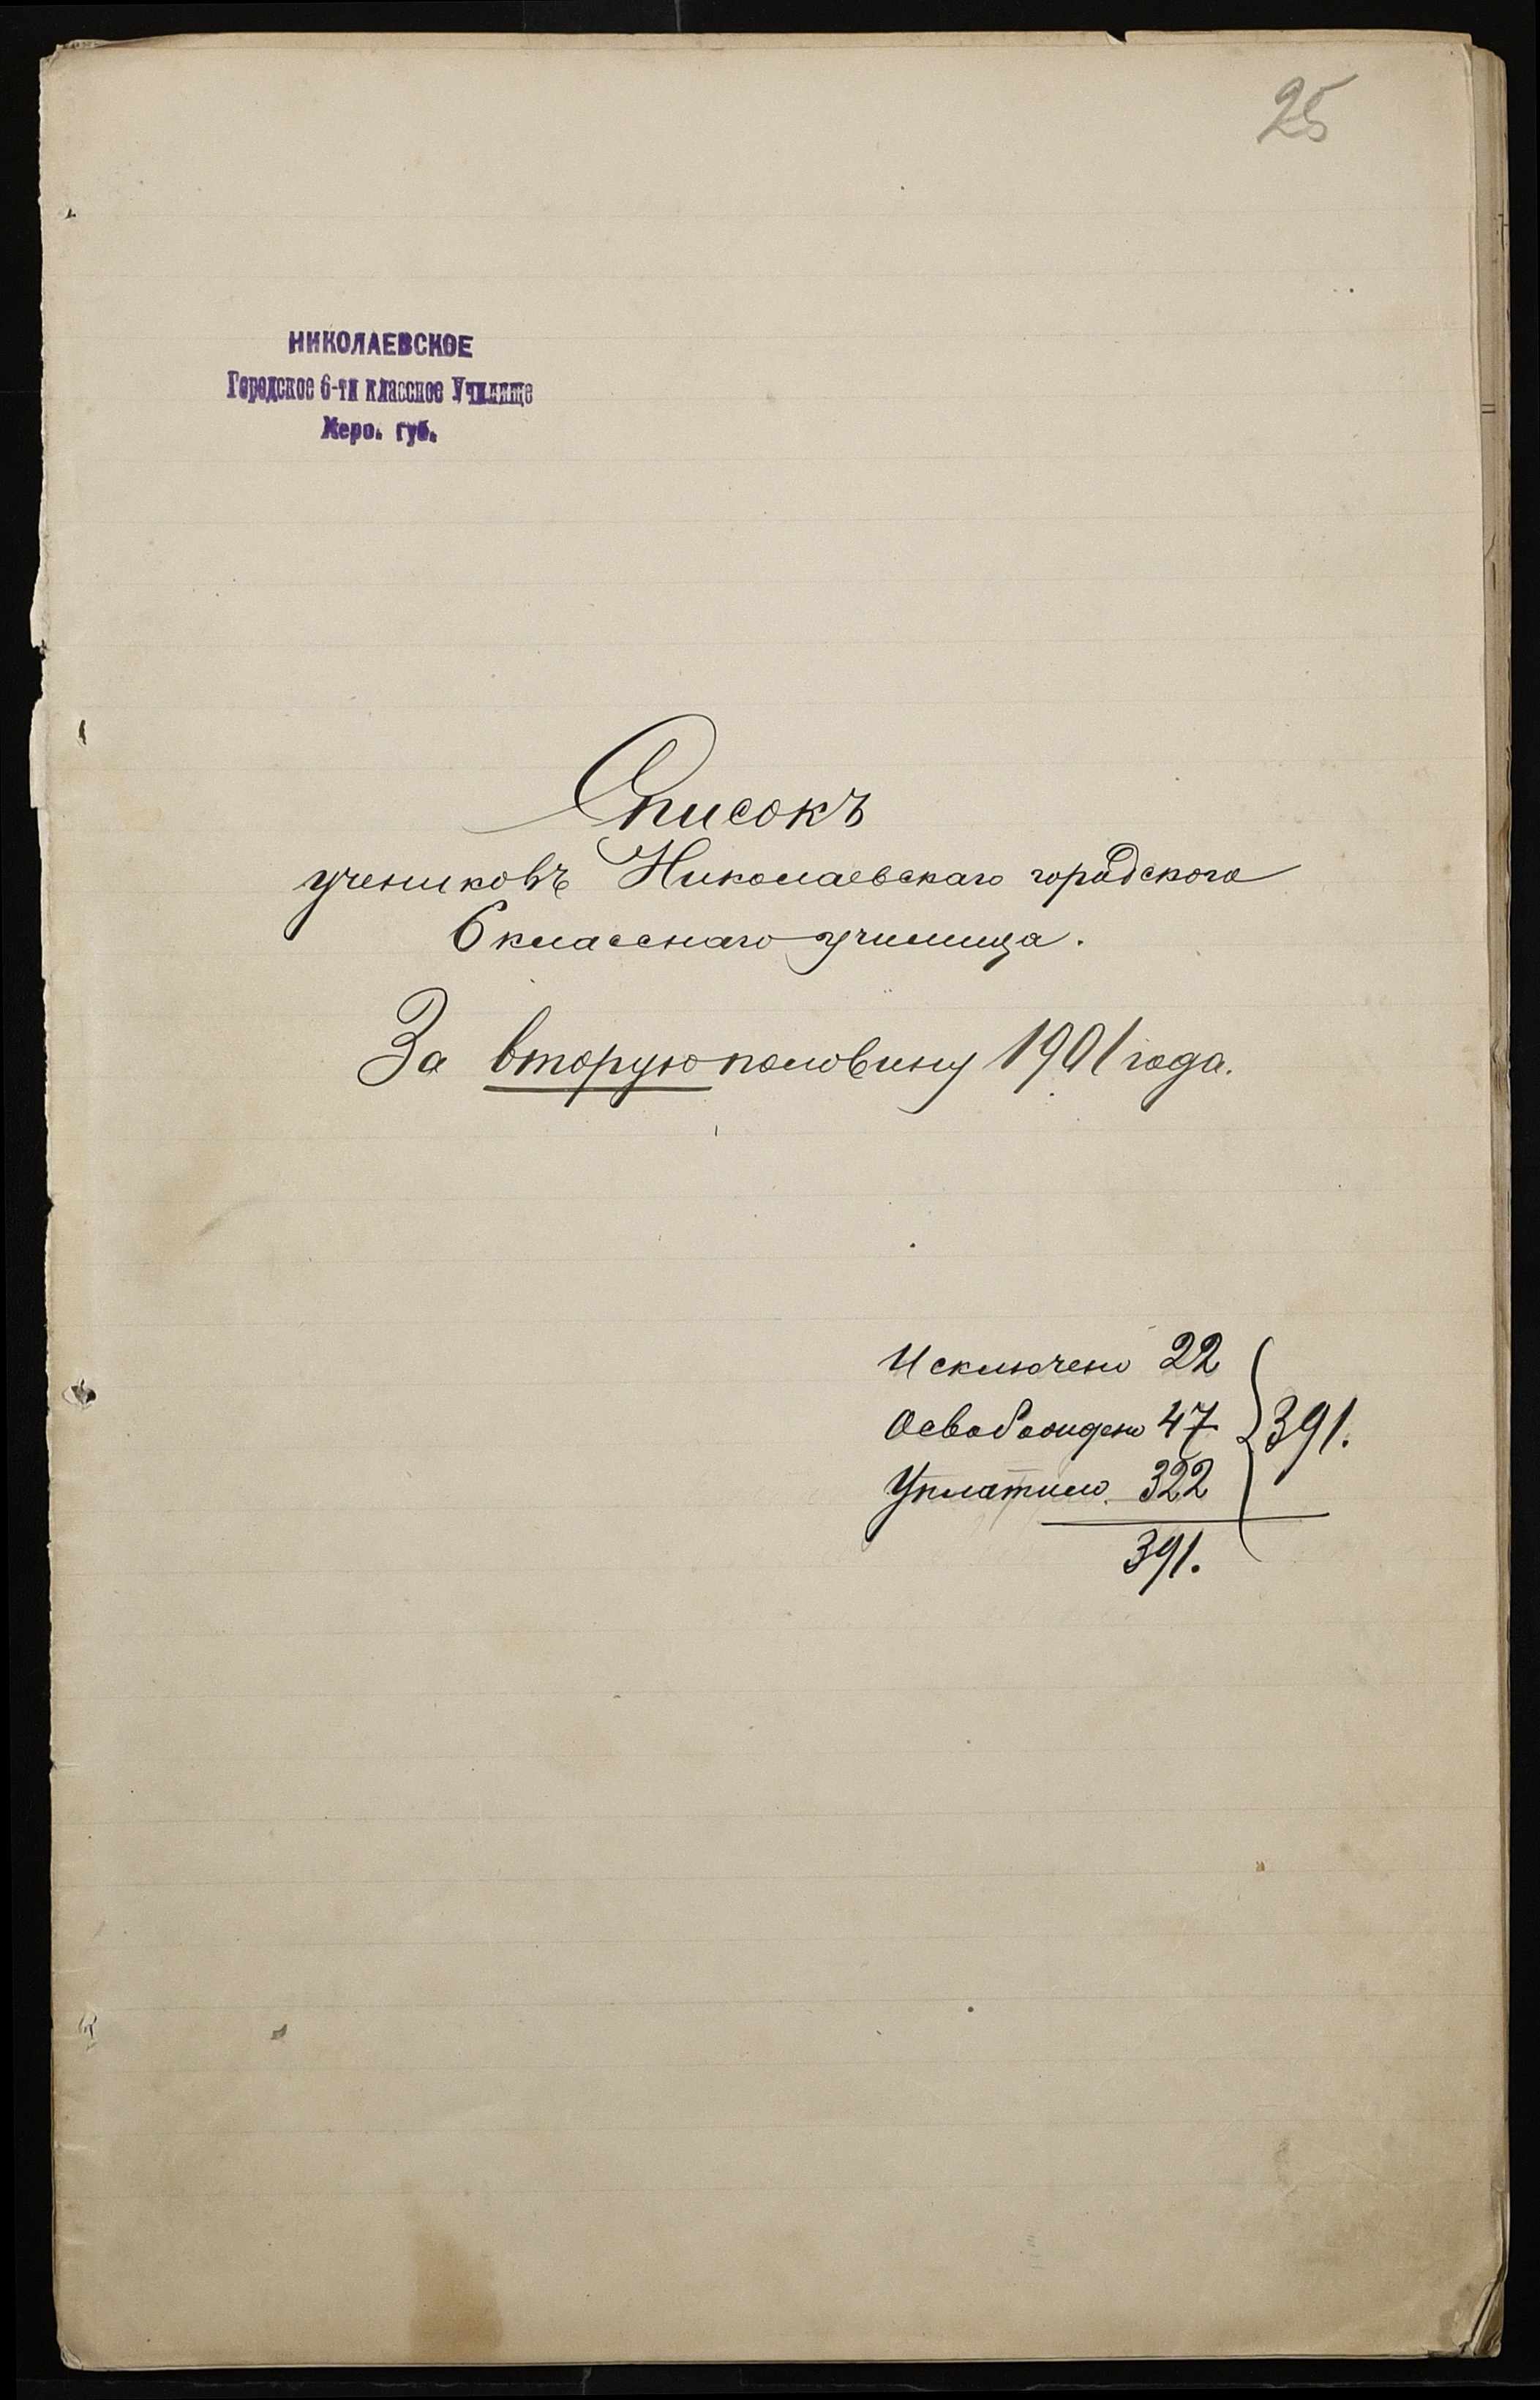 25
НИКОЛАЕВСКОЕ
Городское 6-ти классное Училище
Херс. губ.
Списокъ
учениковъ Николаевскаго городского
6 класснаго училища.
За вторую половину 1901 года.
Исключено 22
Освобождено 47 } 391.
Уплатило. 322
391.